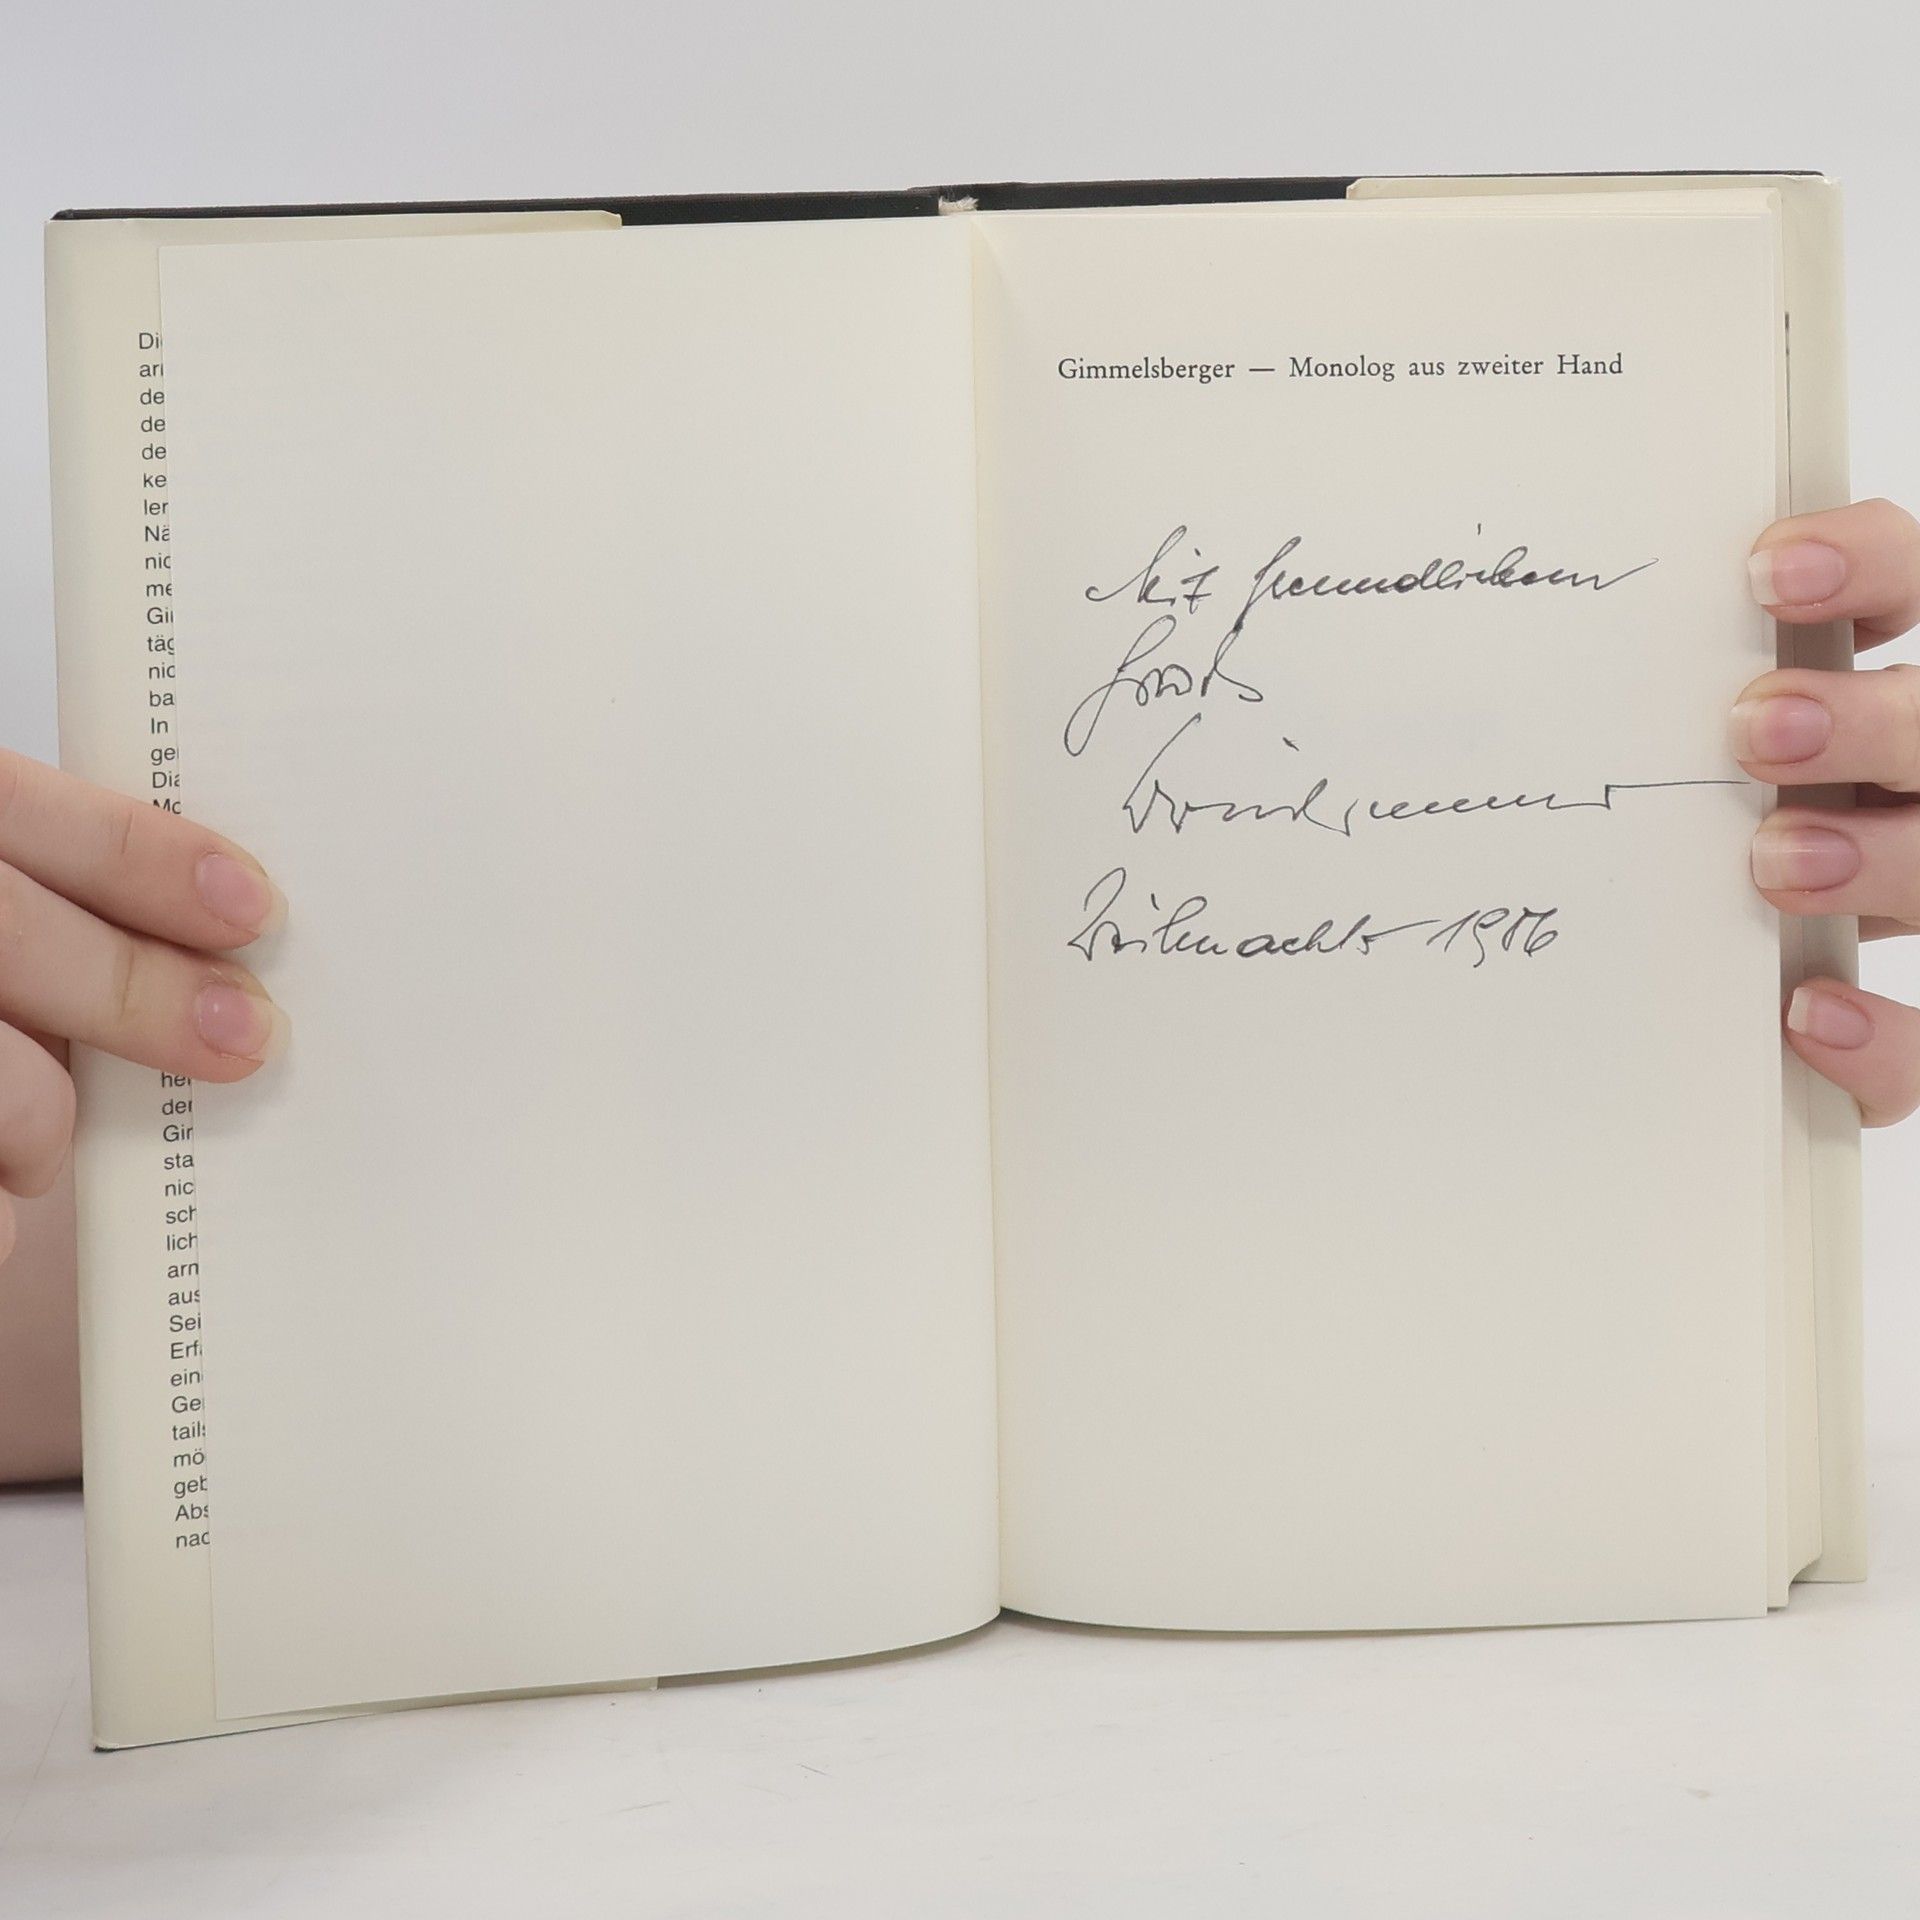 Di
arı
de
de
de
ke
ler
Nä
nic
me
Gi
täg
nic
ba
In
ge
Dia
Mo
her
der
Gir
sta
nic
sch
lich
arn
aus
Sei
Erf
ein
Ge
tails
mö
geb
Abs
nac
Gimmelsberger — Monolog aus zweiter Hand
Mit freundlichem
Gruß
Weihnachts 1986